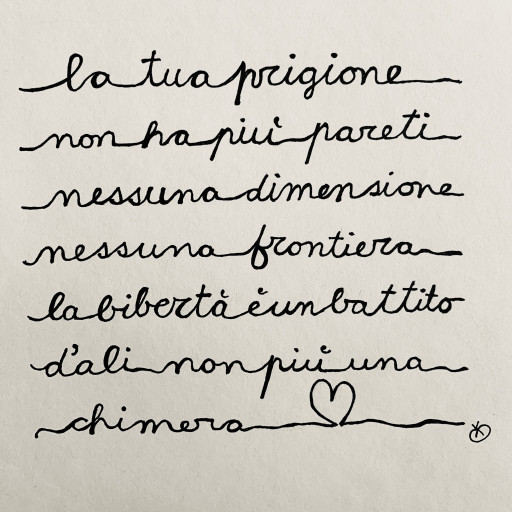 la tua prigione
non ha più pareti
nessuna dimensione
nessuna frontiera
la bibertà è un battito
d'ali non più una
chimera